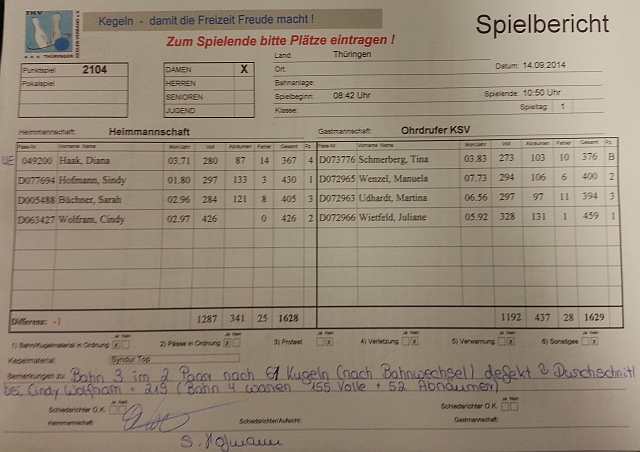 TKV
THÜRINGER
Kegeln - damit die Freizeit Freude macht !
Spielbericht
Zum Spielende bitte Plätze eintragen !
Land: Thüringen
Ort: Datum: 14.09.2014
Bahnanlage:
Spielbeginn: 08:42 Uhr Spielende: 10:50 Uhr
Klasse: Spieltag: 1
Punktspiel 2104
Pokalspiel
DAMEN X
HERREN
SENIOREN
JUGEND
Heimmannschaft: Heimmannschaft Gastmannschaft: Ohrdrufer KSV
Pass-Nr. Vorname Name Mon/Jahr Voll Abräumen Fehler Gesamt Pz. Pass-Nr. Vorname Name Mon/Jahr Voll Abräumen Fehler Gesamt Pz.
UE 049200 Haak, Diana 03.71 280 87 14 367 4 D073776 Schmerberg, Tina 03.83 273 103 10 376 B
D077694 Hofmann, Sindy 01.80 297 133 3 430 1 D072965 Wenzel, Manuela 07.73 294 106 6 400 2
D005488 Büchner, Sarah 02.96 284 121 8 405 3 D072963 Udhardt, Martina 06.56 297 97 11 394 3
D063427 Wolfram, Cindy 02.97 426 0 426 2 D072966 Wietfeld, Juliane 05.92 328 131 1 459 1
Differenz: -1 1287 341 25 1628 1192 437 28 1629
1) Bahn/Kugelmaterial in Ordnung Ja Nein x 2) Pässe in Ordnung Ja Nein x 3) Protest Ja Nein x 4) Verletzung Ja Nein x 5) Verwarnung Ja Nein x 6) Sonstiges Ja Nein x
Kegelmaterial: Syndur Top
Bemerkungen zu: Bahn 3 im 2 Paar nach 61 Kugeln (nach Bahnwechsel) defekt Durchschnitt
bei Cindy Wolfram = 219 (Bahn 4 waren 155 Volle + 52 Abräumer)
Schiedsrichter O.K. Ja Nein Schiedsrichter O.K. Ja Nein
Heimmannschaft: Schiedsrichter/Aufsicht: Gastmannschaft:
S. Hofmann